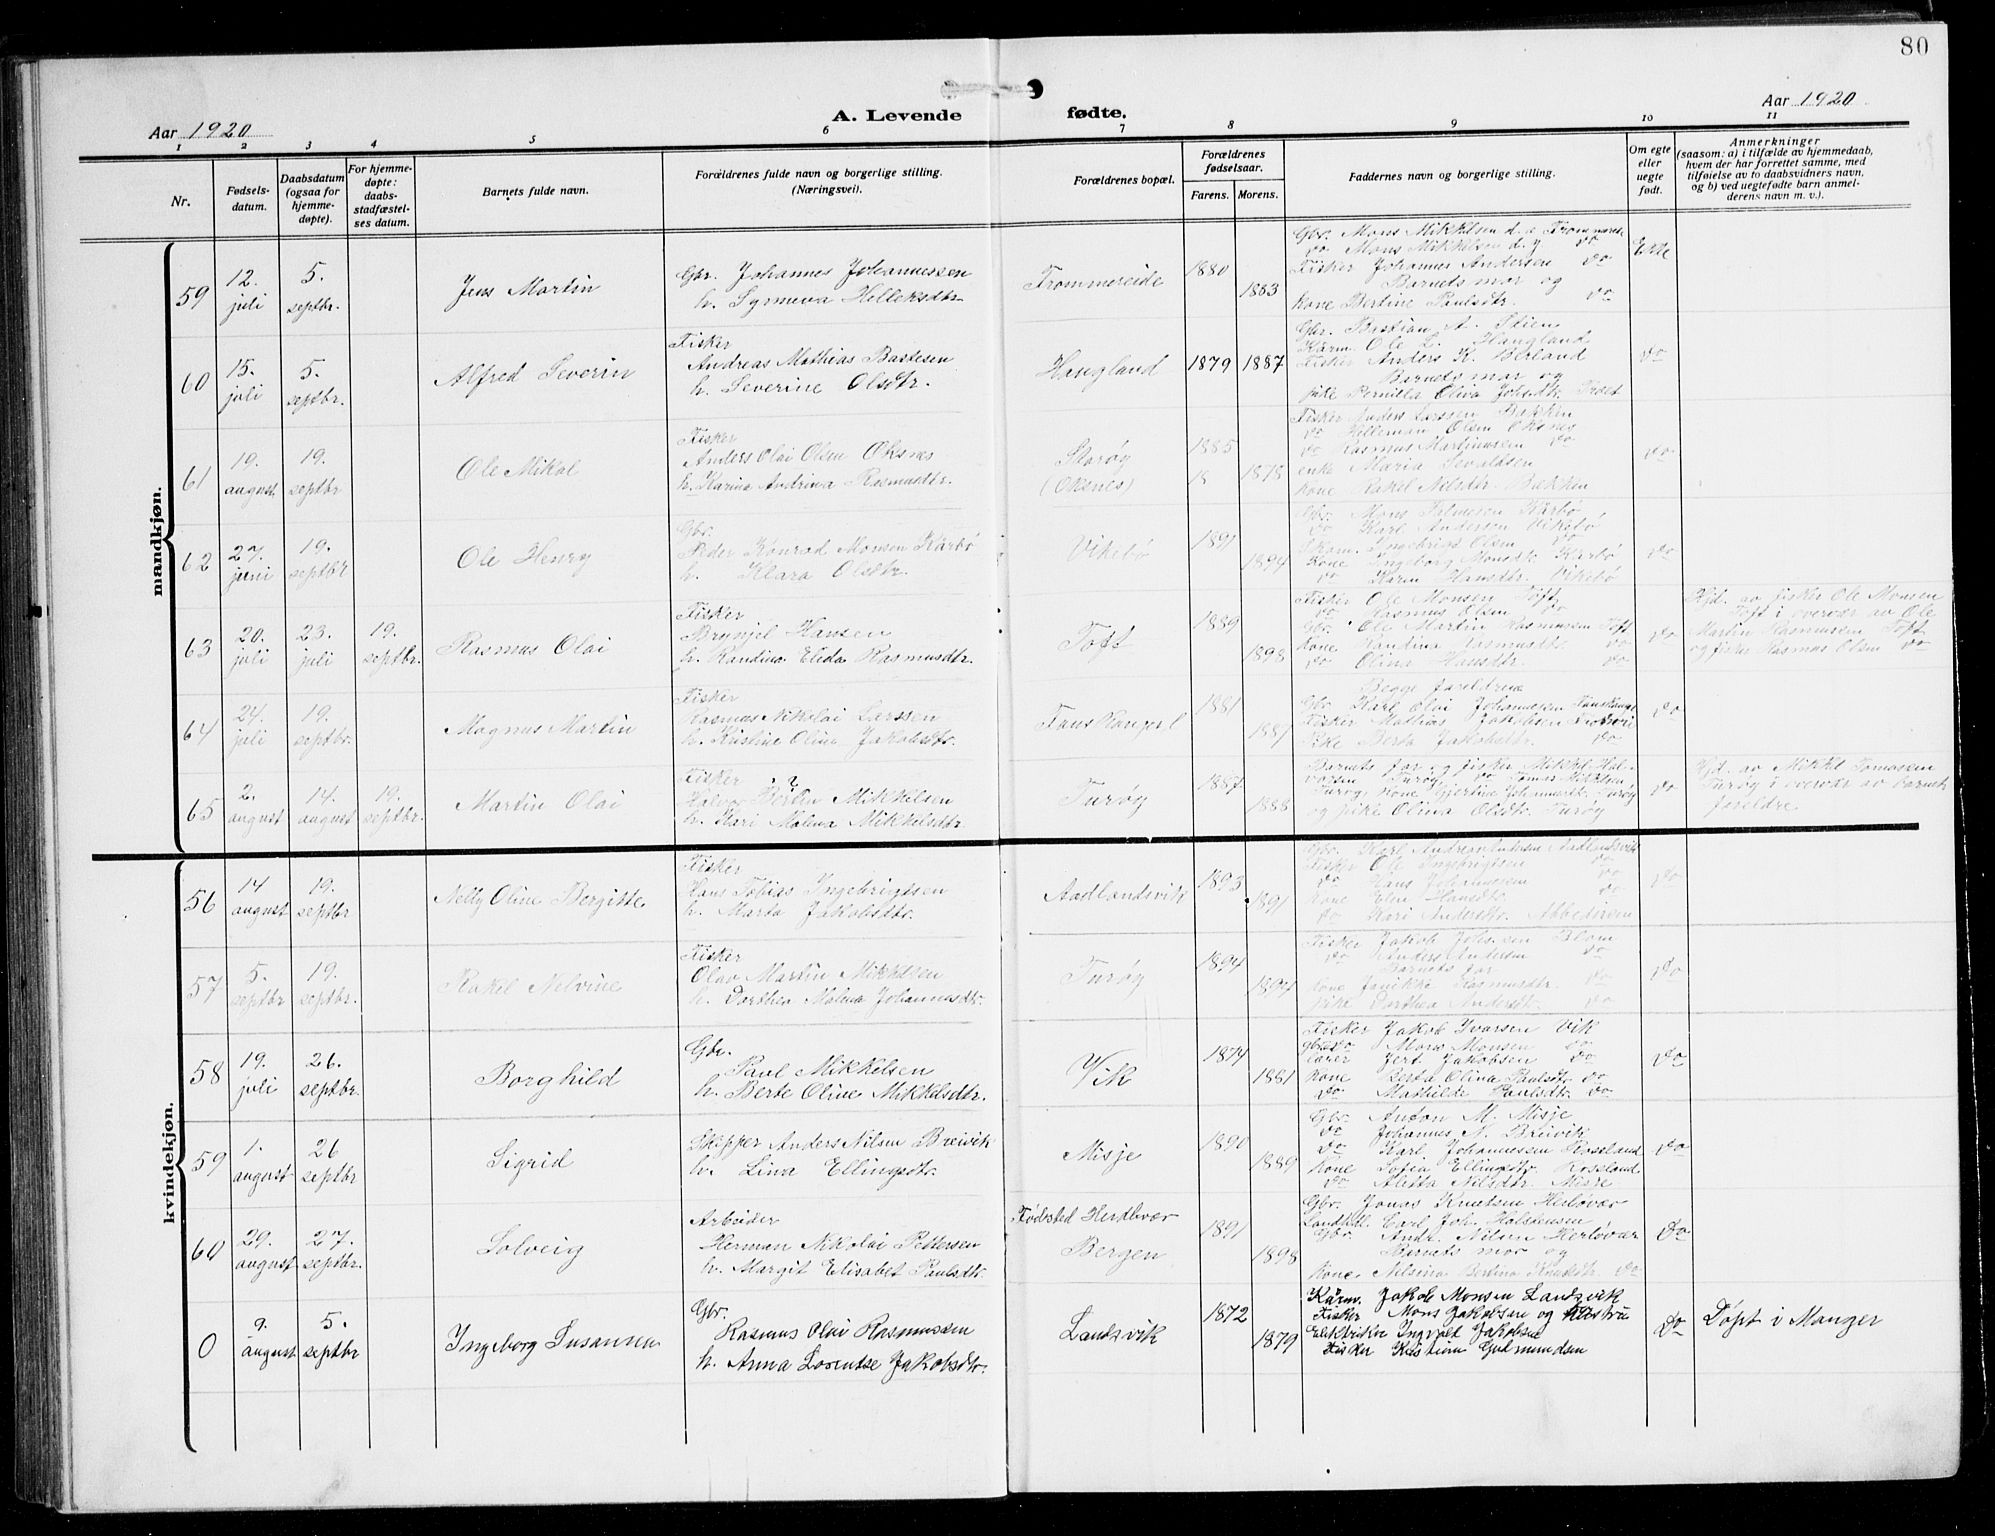 80
Aar 1920
A. Levende fødte.
Aar 1920
1 2 3 4 5 6 7 8 9 10 11
Nr.
Fødsels-
datum.
Daabsdatum
(ogsaa for
hjemme-
døpte).
For hjemme-
døpte:
daabs-
stadfæstel-
ses datum.
Barnets fulde navn.
Forældrenes fulde navn og borgerlige stilling.
(Næringsvei).
Forældrenes bopæl.
Forældrenes
fødselsaar.
Farens. Morens.
Faddernes navn og borgerlige stilling.
Om egte
eller
uegte
født.
Anmerkninger
(saasom: a) i tilfælde av hjemmedaab,
hvem der har forrettet samme, med
tilføielse av to daabsvidners navn,
og b) ved uegtefødte barn anmel-
derens navn m. v.).
mandkjøn.
59
12.
juli
5.
septbr.
Jens Martin
Gbr. Johannes Johannessen
h. Synneva Helleksdtr.
Trommereide
1880
1883
Gbr. Mons Mikkelsen d.e.
do Mons Mikkelsen d.y do
Fisker Johannes Andersen do
Barnets mor og
kone Bertine Paulsdtr. do
Ekte
60
15.
juli
5.
septbr.
Alfred Severin
Fisker
Andreas Mathias Bastesen
h. Severine Olsdtr.
Haugland
1879 1887
Gbr. Bastian A. Stien
Ole L. Haugland
Fisker Anders K. Berland
Barnets mor og
pike Pernilla Oliva Johsdtr.
do
61
19.
august
19.
septbr
Ole Mikal
Fisker
Anders Olai Olsen Oksnes
h. Karina Andrina Rasmusdtr.
Skorøy
(Oksnes)
1885
18 1878
Fisker Anders Larssen Bakken
do Helleman Olsen Oksnes
do Rasmus Martinussen do
enke Maria Sevaldsen
kone Rakel Nilsdtr. Bakken
do
62
27.
juni
19.
septbr
Ole Henry
Gbr.
Peder Konrad Monsen Kårbø
h. Klara Olsdtr.
Vikebø
1891
1894
Gbr. Mons Kårbø
do Karl Andersen Vikebø
Ingebrigt Olsen do
kone Ingeborg Monsdtr. Kårbø
do Karen Hansdtr. Vikebø
do
63
20.
juli
23.
juli
19.
septbr.
Rasmus Olai
Fisker
Brynjel Hansen
h. Randina Elida Rasmusdtr.
Toft
1889
1898
Fisker Ole Monsen Toft
do Rasmus Olsen do
Gbr. Ole Martin Rasmussen Toft
kone Randina Rasmusdtr. do
do Olina Hansdtr. do
do
Hjd. av fisker Ole Monsen
Toft i overvær av Ole
Martin Rasmussen Toft
og fisker Rasmus Olsen do
64
24.
juli
19.
septbr.
Magnus Martin
Fisker
Rasmus Nikolai Larssen
h. Kristine Oline Jakobsdtr.
1881
1887
Begge foreldrene
Gbr Karl Olai Johannesen
Fisker Mathias Jakobsen
Pike Berta Jakobsdtr. do
do
65
2.
august
14.
august
19.
septbr.
Martin Olai
Fisker
Halvor Bertin Mikkelsen
h. Kari Malena Mikkelsdtr.
Turøy
1887.
1888
Barnets far og fisker Mikkel Hal-
vorsen Turøy, do Tomas Mikkelsen
Turøy, kone Gjertine Johannesdtr. Turøy
og pike Olina Olsdtr. Turøy
do
Hjd. av Mikkel Tomassen
Turøy i overvær av barnets
foreldre
kvindekjøn.
56
14
august
19.
septbr
Nelly Oline Bergitte.
Fisker
Hans Tobias Ingebrigtsen
h. Marta Jakobsdtr.
Aadlandsvik
1893
1891
Gbr. Karl Andreas Aadlandsvik
Fisker Ole Ingebrigtsen do
do Hans Johannessen do
kone Elen Hansdtr. do
do Kari Andersdtr.
do
57
5.
septbr
19.
septbr.
Rakel Nelvine
Fisker
Olav Martin Mikkelsen
h. Dorthea Malena Johannesdtr.
Turøy
1894
1894
Fisker Jakob Blom
do Anders Andersen do
Barnets far
kone Janikke Rasmusdtr. do
pike Dorthea Andersdtr. do
do
58
19.
juli
26.
septbr.
Borghild
Gbr.
Paul Mikkelsen
h. Berte Oline Mikkelsdtr.
Vik
1874
1881
Fisker Jakob Ivarsen Vik
Mons Monsen do
lærer Jert Jakobsen do
kone Berta Olina Paulsdtr. do
do Mathilde Paulsdtr. do
do
59
1.
august
26
septbr
Sigrid
Skipper Anders Nilsen Breivik
h. Lina Ellingsdtr.
Misje
1890
1889
Gbr. Anton M. Misje
do Johannes N. Breivik
do Karl Johannessen Rossland
kone Sofia Ellingsdtr. Rossland
do Aletta Nilsdtr. Misje
do
60
29.
august
27.
septbr.
Solveig
Arbeider
Herman Nikolai Pettersen
h. Margit Elisabet Paulsdtr.
Fødested Herdlevær
Bergen
1891
1898
Gbr. Jonas Knutsen Herløvær
Landhdl. Carl Joh. Halstensen
Gbr. Andr. Nilsen Herløvær
Barnets mor og
kone Nelsina Bertina Knudsdtr. do
do
0
9.
august
5.
septbr
Ingeborg Susanna
Gbr.
Rasmus Olai Rasmussen
h. Anna Lorentse Jakobsdtr.
Landsvik
1872
1879
Jakob Monsen Landsvik
Fisker Mons Jakobsen og hustru
Elektriker Ingvald Jakobsen
Fisker Kristian Gudmundsen
do
Døpt i Manger